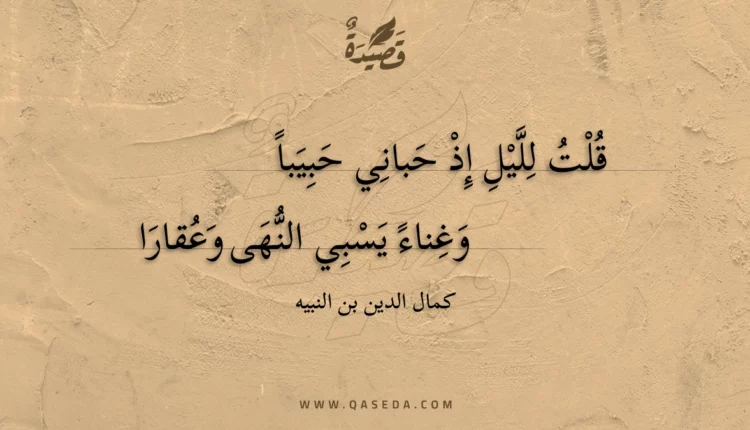 قَصِيدَةٌ
قُلْتُ لِلَّيْلِ إِذْ حَبانِي حَبِيَباً
وَغِناءً يَسْبِي النُّهَى وَعُقارَا
كمال الدين بن النبيه
WWW.QASEDA.COM